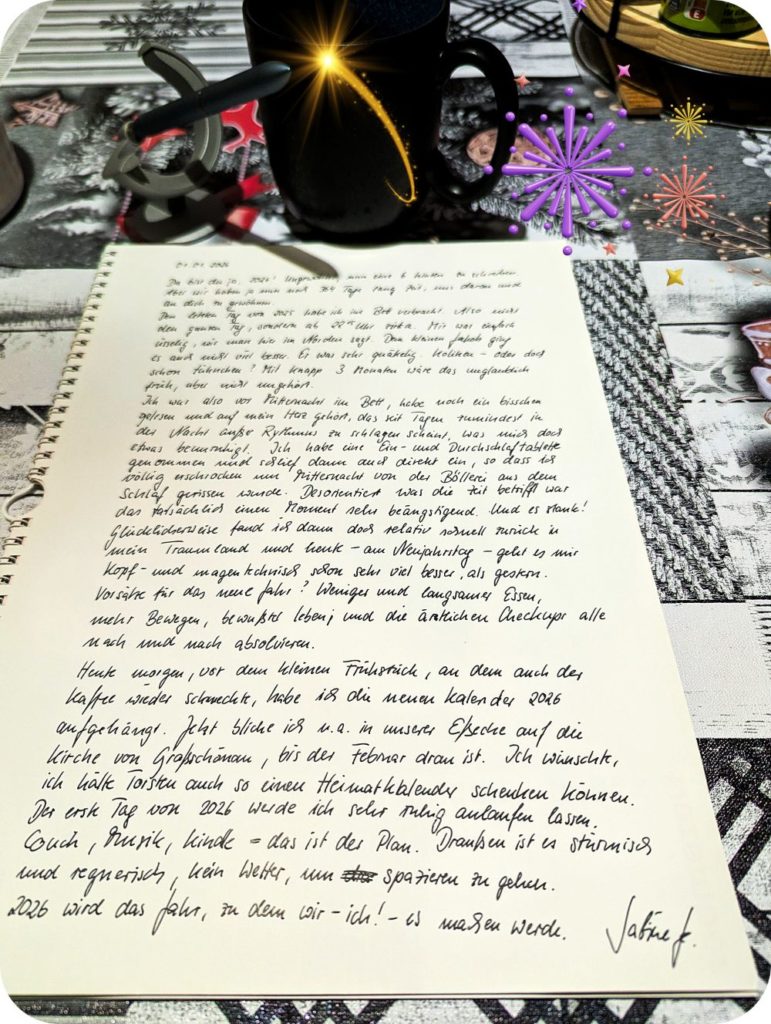 01.01.2026
Da bist du ja, 2026! Ungewohnt, nun eine 6 hinten zu schreiben.
Aber wir haben ja nun noch 364 Tage lang Zeit, uns daran und
an dich zu gewöhnen.
Den letzten Tag von 2025 habe ich im Bett verbracht. Also nicht
den ganzen Tag, sondern ab Uhr zirka. Mir war einfach
üsselig, wie man hier im Norden sagt. Dem kleinen Jakob ging
es auch nicht viel besser. Er war sehr quäkelig. Koliken - oder doch
schon Zähnchen? Mit knapp 3 Monaten wäre das unglaublich
früh, aber nicht ungehört.
Ich war also vor Mitternacht im Bett, habe noch ein bisschen
gelesen und auf mein Herz gehört, das seit Tagen zumindest in
der Nacht außer Rythmus zu schlagen scheint, was mich doch
etwas beunruhigt. Ich habe eine Ein- und Durchschlaftablette
genommen und schlief dann auch direkt ein, so dass ich
völlig erschrocken um Mitternacht von der Böllerei aus dem
Schlaf gerissen wurde. Desorientiert was die Zeit betrifft war
das tatsächlich einen Moment sehr beängstigend. Und es stank!
Glücklicherweise fand ich dann doch relativ schnell zurück in
mein Traumland und heute - am Neujahrstag - geht es mir
Kopf- und magentechnisch schon sehr viel besser, als gestern.
Vorsätze für das neue Jahr? Weniger und langsamer Essen,
mehr Bewegen, bewußter leben, und die ärztlichen Checkups alle
nach und nach absolvieren.
Heute morgen, vor dem kleinen Frühstück, an dem auch der
Kaffee wieder schmeckte, habe ich die neuen Kalender 2026
aufgehängt. Jetzt blicke ich u.a. in unserer Eßecke auf die
Kirche von Großschönau, bis der Februar dran ist. Ich wünschte,
ich hätte Torsten auch so einen Heimatkalender schenken können.
Der erste Tag von 2026 werde ich sehr ruhig anlaufen lassen.
Couch, Musik, Kindle = das ist der Plan. Draußen ist es stürmisch
und regnerisch, kein Wetter, um spazieren zu gehen.
2026 wird das Jahr, zu dem wir - ich! - es machen werde. Sabine